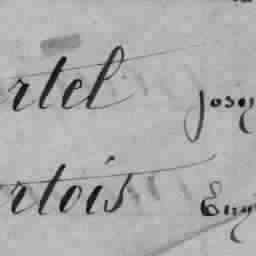 rtel Josep
rtois Eug